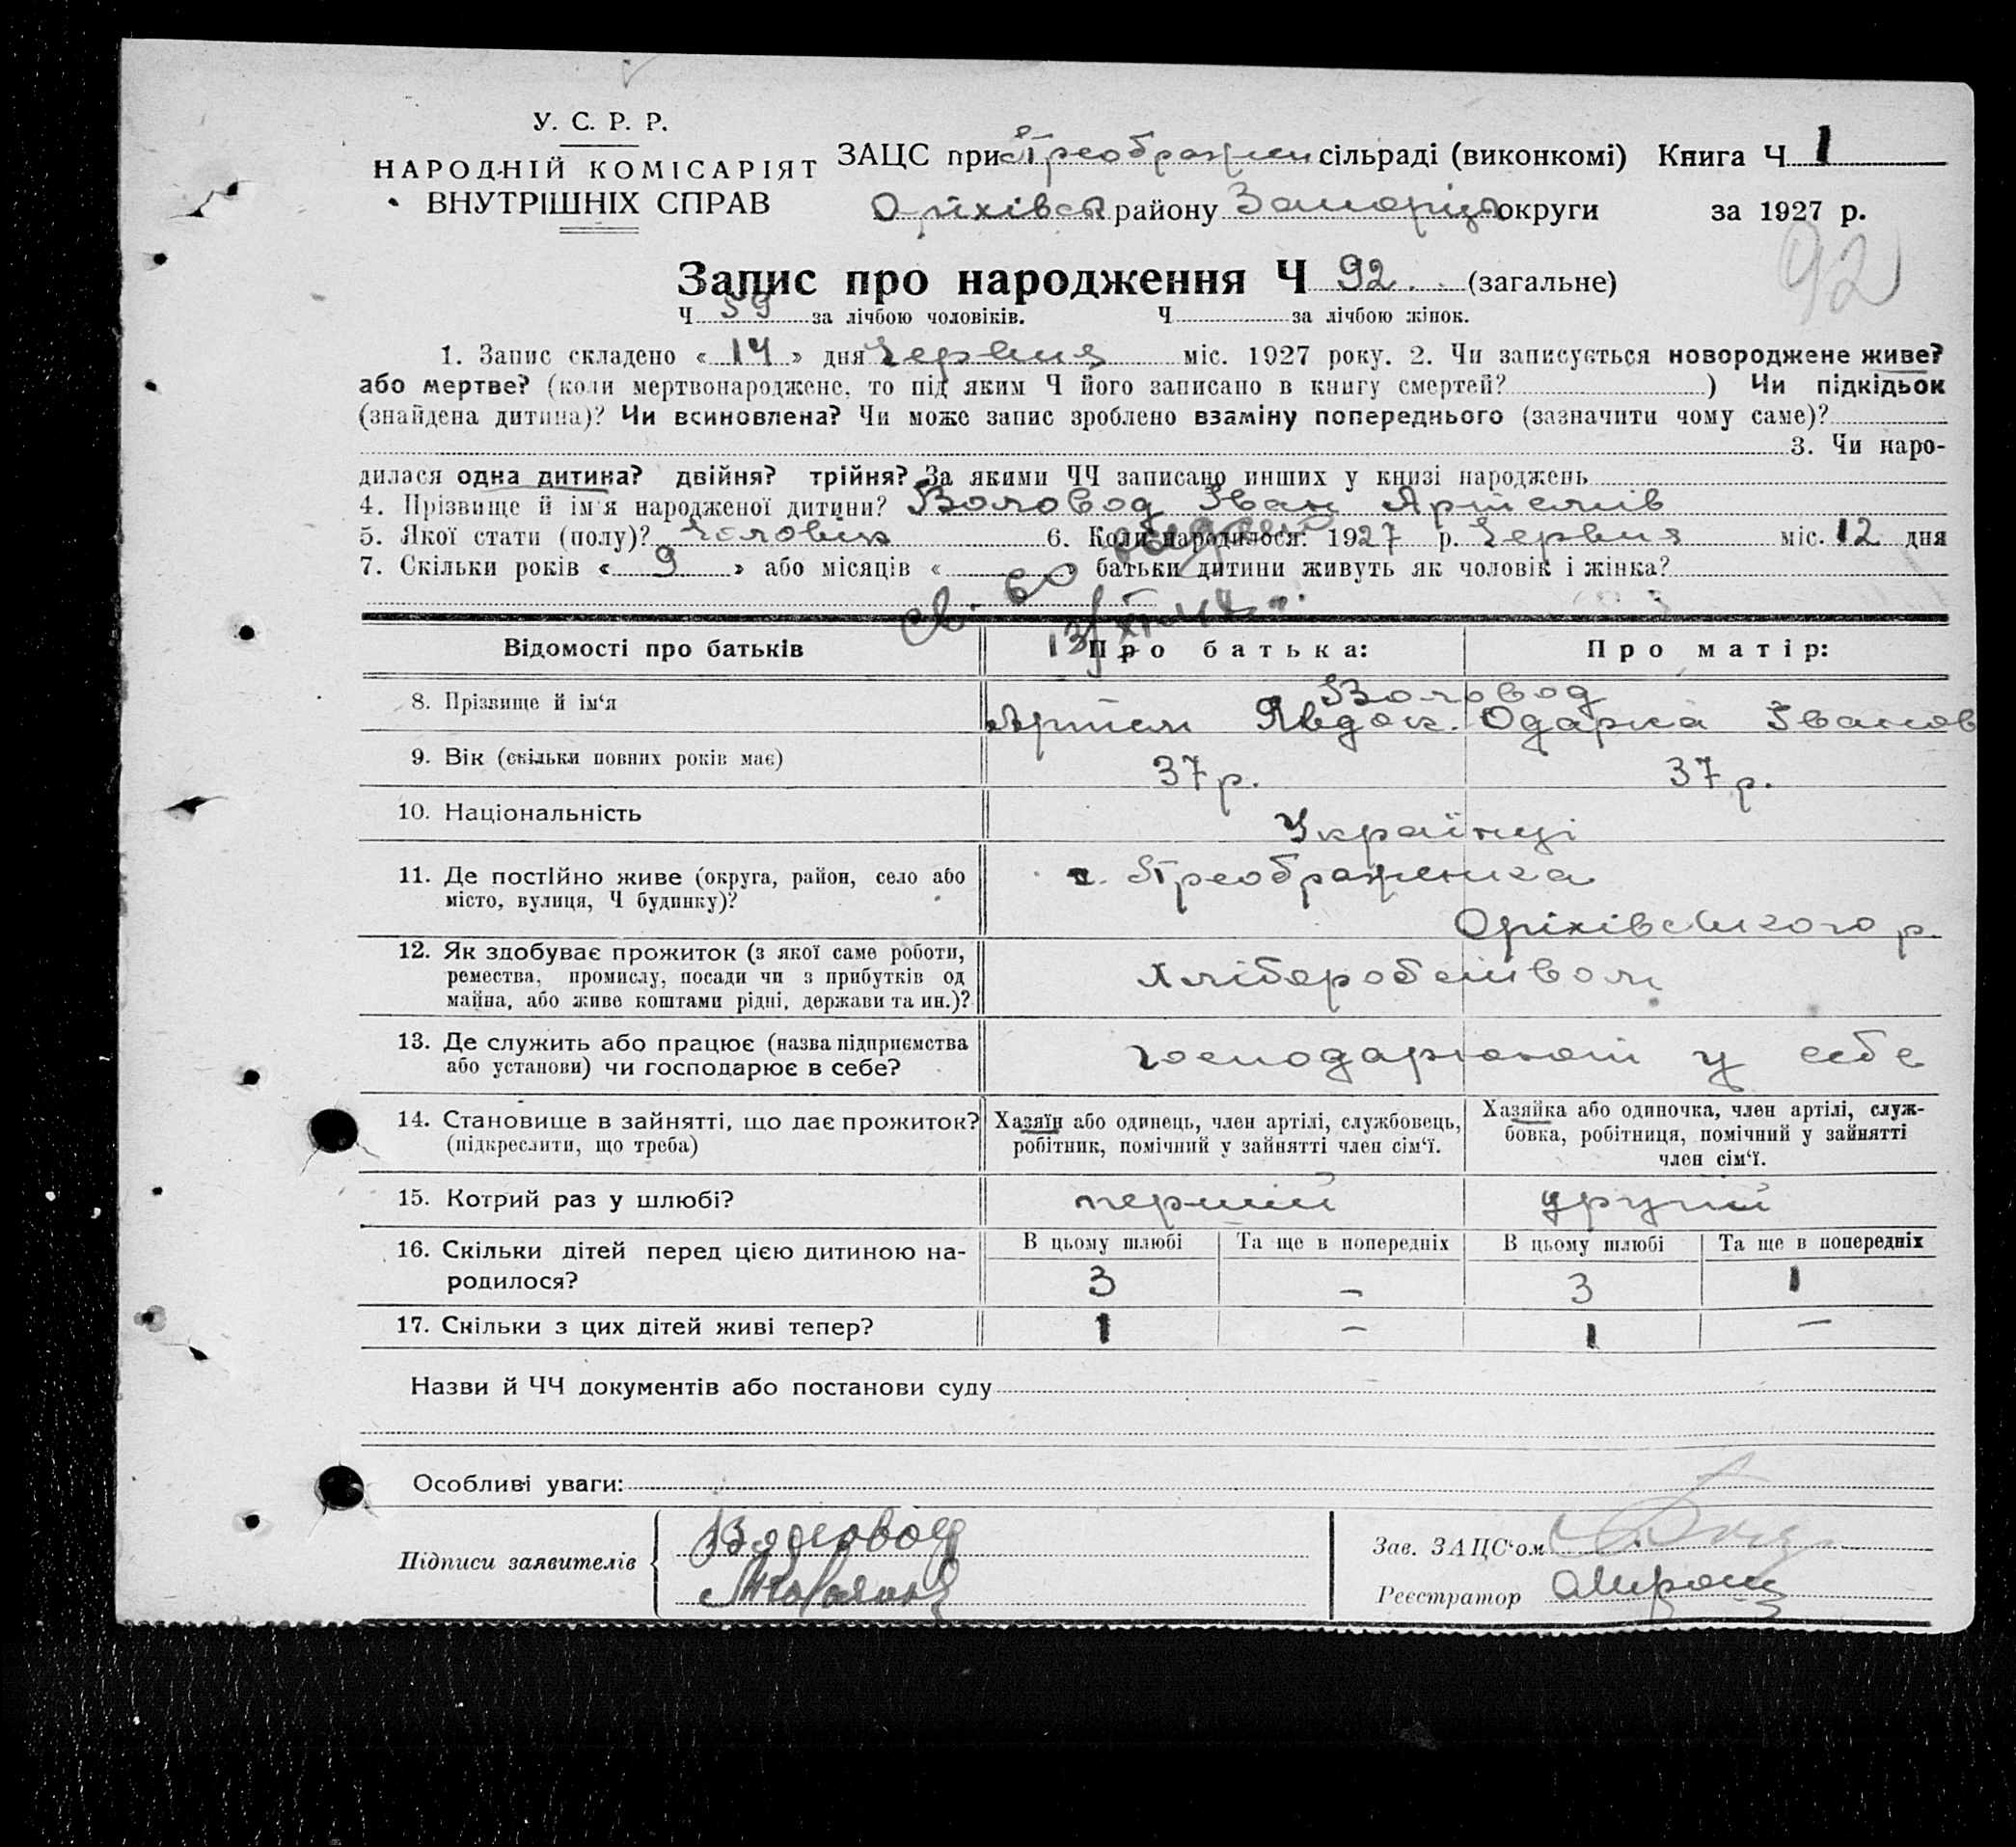 У. С. Р. Р.
НАРОДНІЙ КОМІСАРІЯТ
ВНУТРІШНІХ СПРАВ
ЗАЦС при Преображен сільраді (виконкомі) Книга Ч 1
Оріхівськ району Запоріз округи за 1927 р.
92
Запис про народження Ч 92 (загальне)
Ч 59 за лічбою чоловіків. Ч за лічбою жінок.
1. Запис складено « 14 » дня Червня міс. 1927 року. 2. Чи записується новороджене живе?
або мертве? (коли мертвонароджене, то під яким Ч його записано в книгу смертей? ) Чи підкідьок
(знайдена дитина)? Чи всиновлена? Чи може запис зроблено взаміну попереднього (зазначити чому саме)?
3. Чи наро-
дилася одна дитина? двійня? трійня? За якими ЧЧ записано инших у книзі народжень
4. Прізвище й ім'я народженої дитини? Воловод Іван Артемів
5. Якої стати (полу)? Чоловік 6. Коли народилося: 1927 р. Червня міс. 12 дня
7. Скільки років « 9 » або місяців « » батьки дитини живуть як чоловік і жінка?
Відомості про батьків Про батька: Про матір:
Воловод
8. Прізвище й ім‘я Артем Явдок. Одарка Іванов
9. Вік (скільки повних років має) 37 р. 37 р.
10. Національність Українці
11. Де постійно живе (округа, район, село або
місто, вулиця, Ч будинку)?
с. Преображенка
Оріхівського р.
12. Як здобуває прожиток (з якої саме роботи,
ремества, промислу, посади чи з прибутків од
майна, або живе коштами рідні, держави та ин.)?
Хліборобством
13. Де служить або працює (назва підприємства
або установи) чи господарює в себе?
господарюют у себе
14. Становище в зайнятті, що дає прожиток?
(підкреслити, що треба)
Хазяїн або одинець, член артілі, службовець,
робітник, помічний у зайнятті член сім‘ї.
Хазяйка або одиночка, член артілі, служ-
бовка, робітниця, помічний у зайнятті
член сім‘ї.
15. Котрий раз у шлюбі? перший другий
16. Скільки дітей перед цією дитиною на-
родилося?
В цьому шлюбі Та ще в попередніх В цьому шлюбі Та ще в попередніх
3 – 3 1
17. Скільки з цих дітей живі тепер? 1 – 1 –
Назви й ЧЧ документів або постанови суду
Особливі уваги:
Підписи заявителів Воловод
Зав. ЗАЦС‘ом
Реєстратор